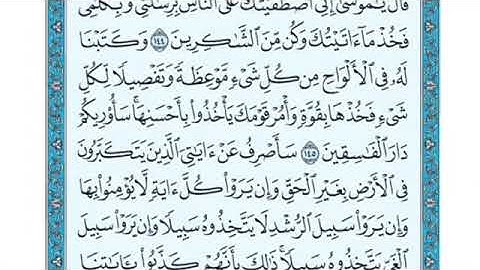 قَالَ يَـٰمُوسَىٰٓ إِنِّى ٱصْطَفَيْتُكَ عَلَى ٱلنَّاسِ بِرِسَـٰلَـٰتِى وَبِكَلَـٰمِى
فَخُذْ مَآ ءَاتَيْتُكَ وَكُن مِّنَ ٱلشَّـٰكِرِينَ ١٤٤ وَكَتَبْنَا
لَهُۥ فِى ٱلْأَلْوَاحِ مِن كُلِّ شَىْءٍ مَّوْعِظَةً وَتَفْصِيلًا لِّكُلِّ
شَىْءٍ فَخُذْهَا بِقُوَّةٍ وَأْمُرْ قَوْمَكَ يَأْخُذُوا۟ بِأَحْسَنِهَا ۚ سَأُو۟رِيكُمْ
دَارَ ٱلْفَـٰسِقِينَ ١٤٥ سَأَصْرِفُ عَنْ ءَايَـٰتِىَ ٱلَّذِينَ يَتَكَبَّرُونَ
فِى ٱلْأَرْضِ بِغَيْرِ ٱلْحَقِّ وَإِن يَرَوْا۟ كُلَّ ءَايَةٍ لَّا يُؤْمِنُوا۟ بِهَا
وَإِن يَرَوْا۟ سَبِيلَ ٱلرُّشْدِ لَا يَتَّخِذُوهُ سَبِيلًا وَإِن يَرَوْا۟ سَبِيلَ
ٱلْغَىِّ يَتَّخِذُوهُ سَبِيلًا ۚ ذَٰلِكَ بِأَنَّهُمْ كَذَّبُوا۟ بِـَٔايَـٰتِنَا